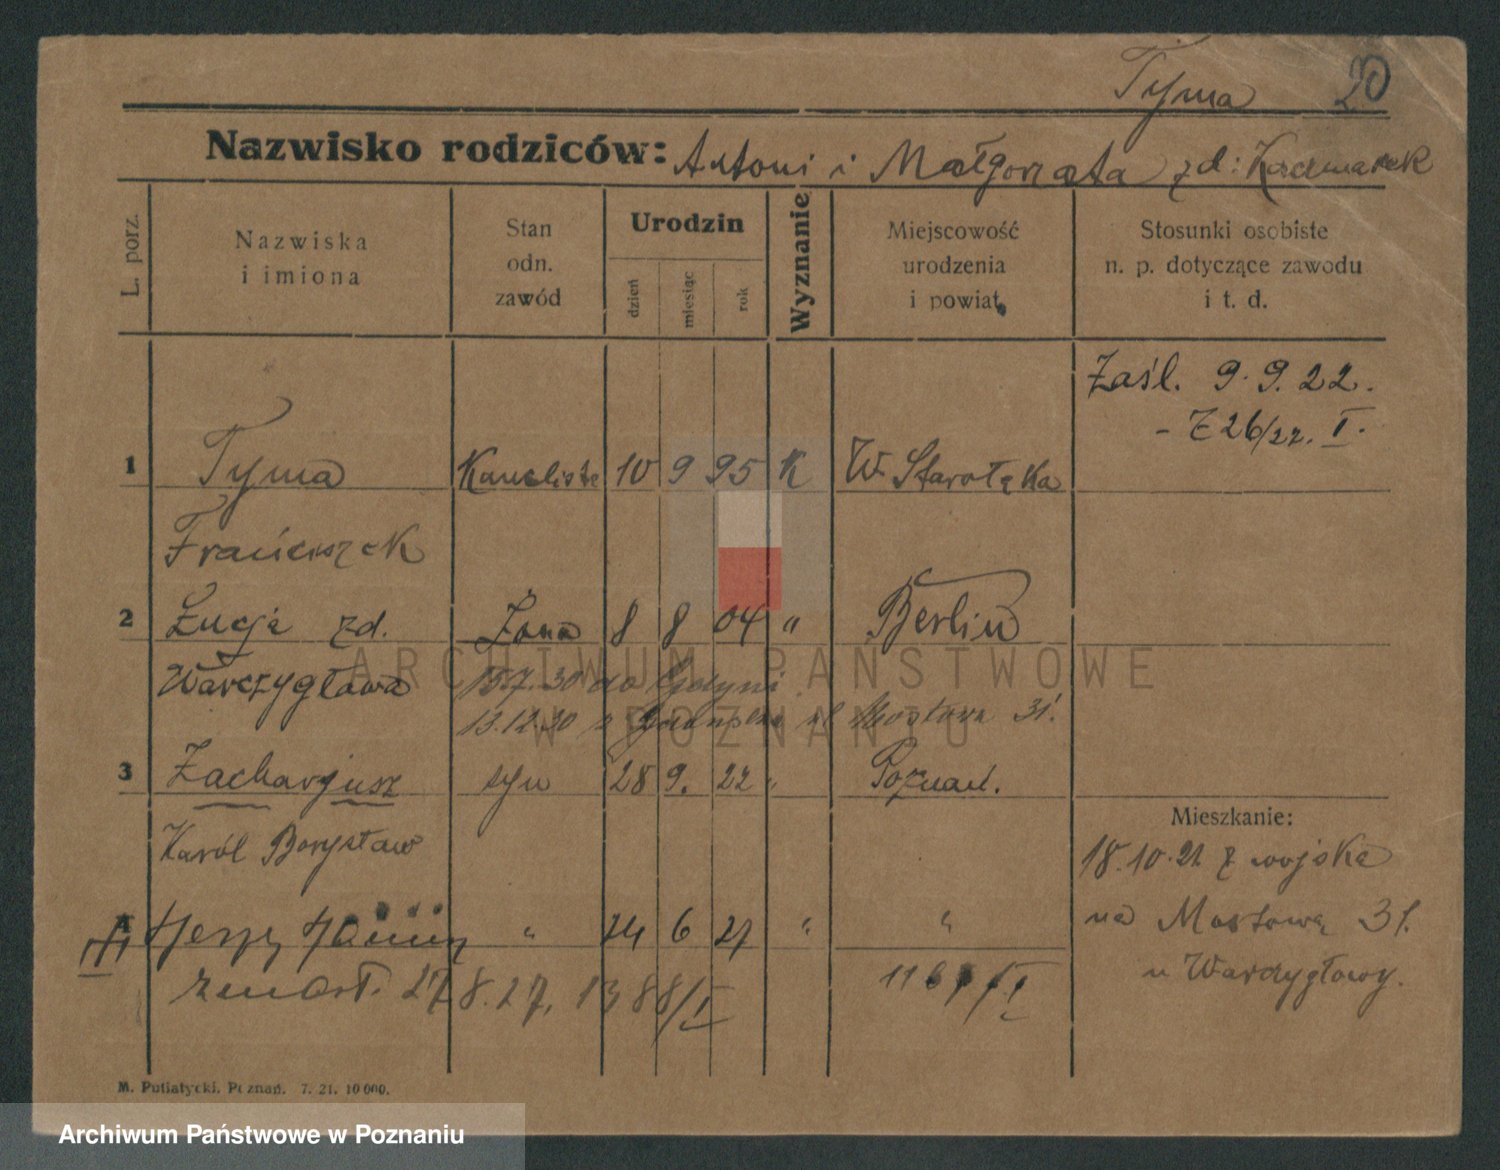 Tyma 20
Nazwisko rodziców: Antoni i Małgorzata zd: Kaczmarek
L. porz.
Nazwiska
i imiona
Stan
odn.
zawód
Urodzin
dzień
miesiąc
rok
Wyznanie
Miejscowość
urodzenia
i powiat
Stosunki osobiste
n. p. dotyczące zawodu
i t. d.
Zaśl. 9.9.22.
- Z 26/22. I.
1 Tyma 10 9 95 K W. Starołęka
Franciszek
2 Łucja zd. Żona 8 8 04 " Berlin
Warczygłowa 15.7.30 do Gdyni
13.12.30 z Mostowa 31.
3 Zacharjusz syn 28 9. 22 " Poznań.
Karól Borysław
Mieszkanie:
18.10.21 z wojska
na Mostową 31.
u Wardzygłowy.
4 Jerzy " 24 6 27 " "
zmarł. 27 8. 27. 1388/I
M. Putiatycki. Poznań. 7. 21. 10 000.
ARCHIWUM PAŃSTWOWE
W POZNANIU
Archiwum Państwowe w Poznaniu